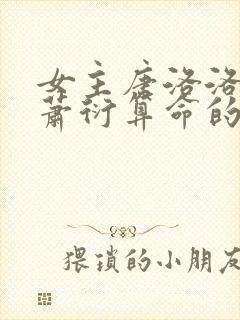 女主唐洛洛
萧衍算命的
猥琐的小朋友